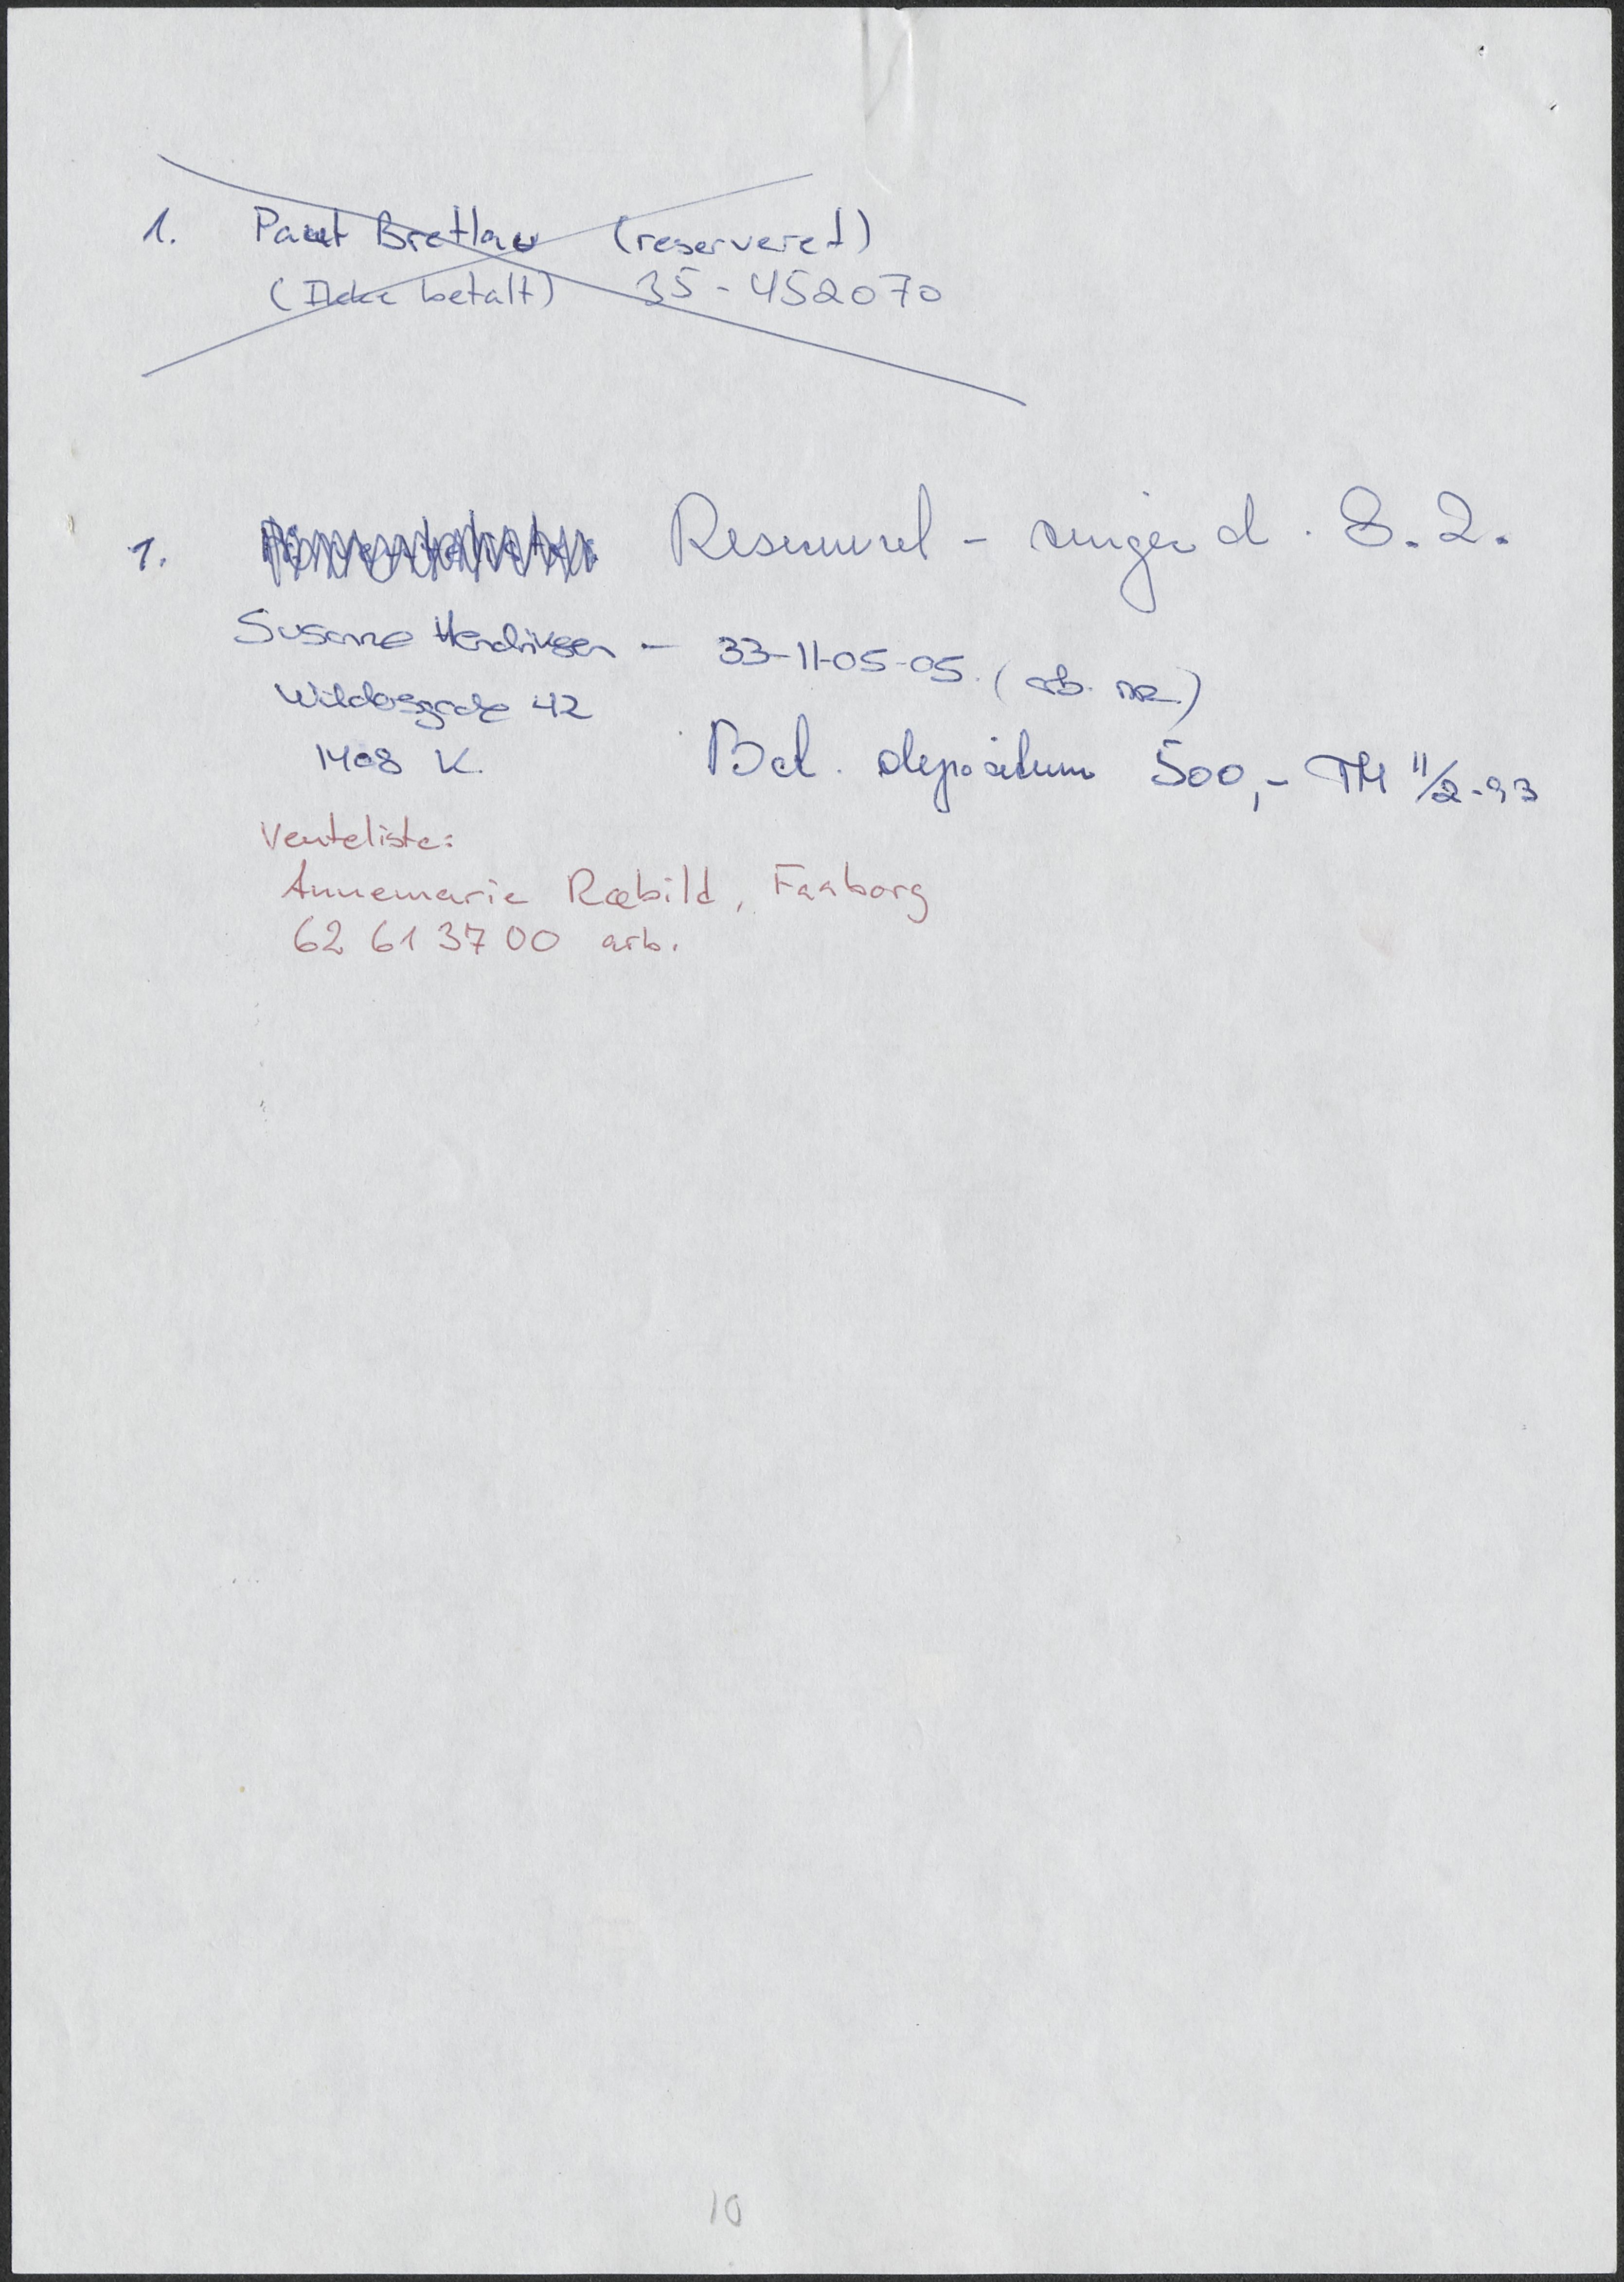 1. Paul Bretlau (reserveret)
(Ikke betalt) 35-452070
1. Reserveret - ringer d. 8.2.
Susanne Hendriksen - 33-11-05-05. (arb. nr.)
Wildersgade 42
1408 K.
Bet. depositum 500,- TM 11/2-93
Venteliste:
Annemarie Ræbild, Faaborg
62 61 37 00 arb.
10